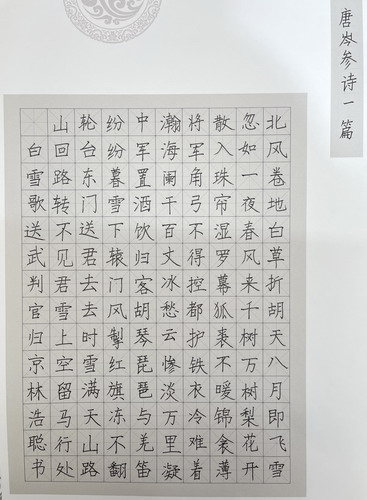 唐岑参诗一篇
北风卷地白草折胡天八月即飞雪
忽如一夜春风来千树万树梨花开
散入珠帘湿罗幕狐裘不暖锦衾薄
将军角弓不得控都护铁衣冷难着
瀚海阑干百丈冰愁云惨淡万里凝
中军置酒饮归客胡琴琵琶与羌笛
纷纷暮雪下辕门风掣红旗冻不翻
轮台东门送君去去时雪满天山路
山回路转不见君雪上空留马行处
白雪歌送武判官归京林浩聪书